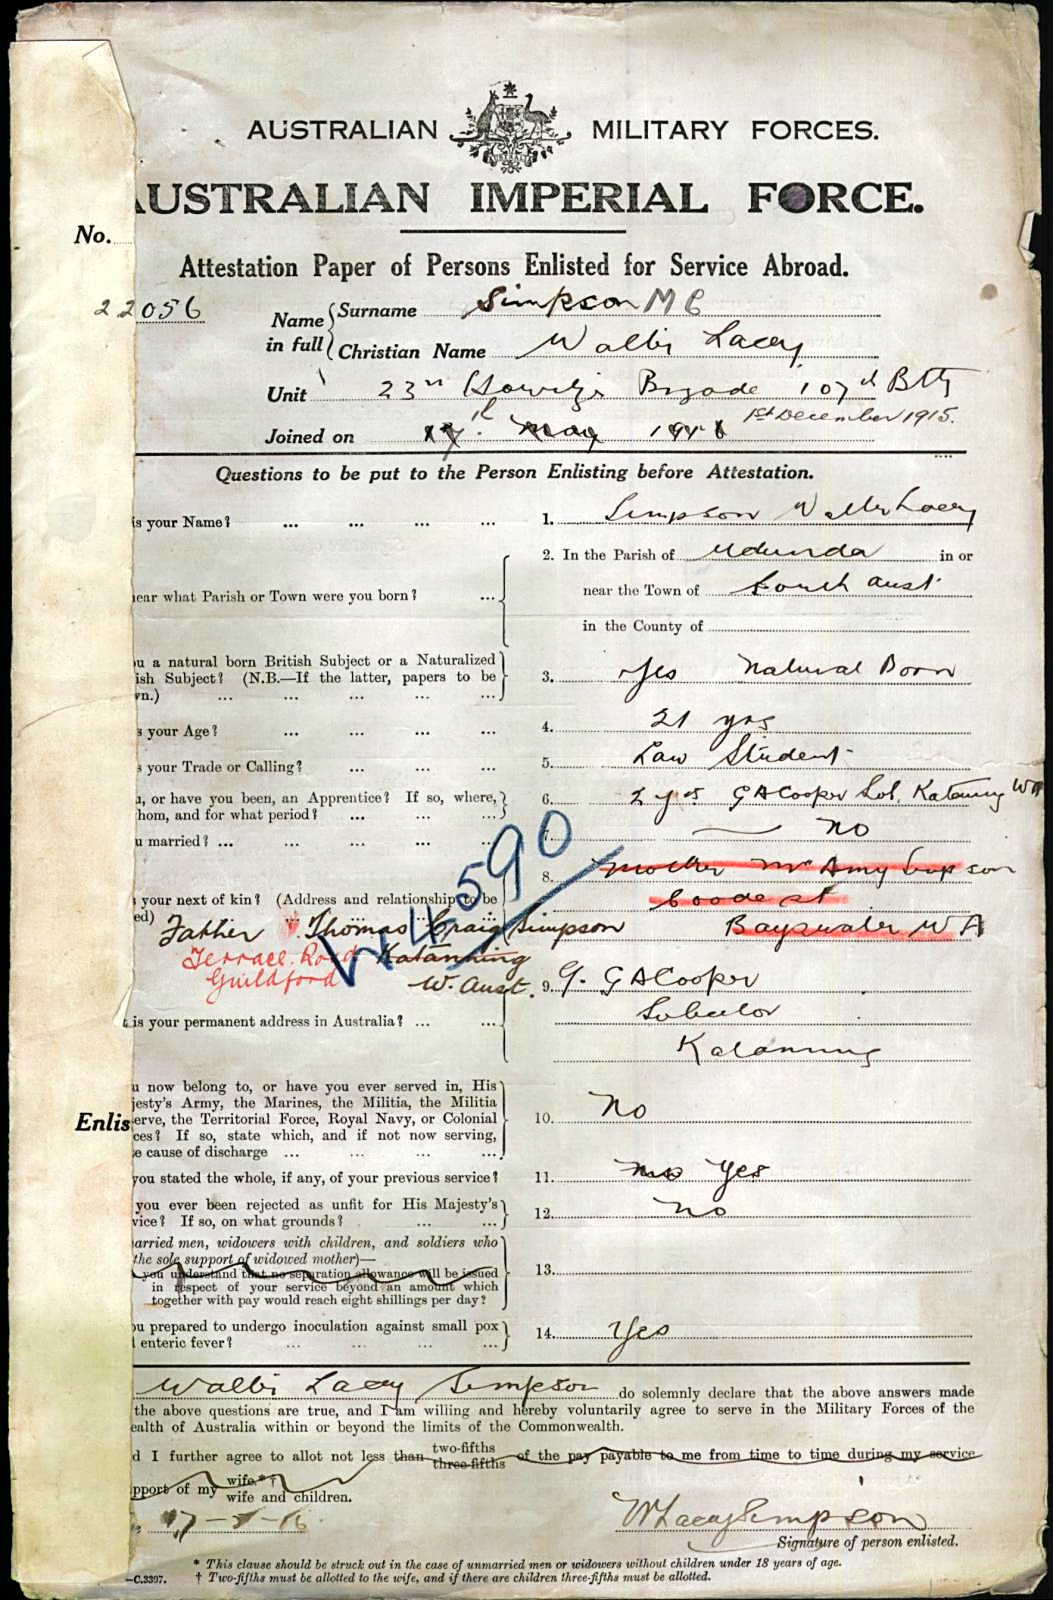 AUSTRALIAN MILITARY FORCES.
AUSTRALIAN IMPERIAL FORCE.
No.
Attestation Paper of Persons Enlisted for Service Abroad.
22056
Name in full
Surname Simpson MC
Christian Name Walter Lacey
Unit 23rd Howitzer Brigade 107th Btty
1st December 1915.
Joined on 17th May 1916
Questions to be put to the Person Enlisting before Attestation.
is your Name? ... ... ... ... 1. Simpson Walter Lacey
2. In the Parish of Udunda in or
near what Parish or Town were you born? ... near the Town of South Aust
in the County of
u a natural born British Subject or a Naturalized
ish Subject? (N.B.—If the latter, papers to be 3. Yes Natural Born
vn.) ... ... ... ...
s your Age? ... ... ... ... 4. 21 yrs
s your Trade or Calling? ... ... ... 5. Law Student
, or have you been, an Apprentice? If so, where, 6. 2 yrs G A Cooper Sol. Katanning WA
hom, and for what period? ... ... ...
u married? ... ... ... ... 7. No
W4590
8. Mother Mrs Amy Simpson
your next of kin? (Address and relationship to be
ed) Coode st
Father Thomas Craig Simpson Bayswater W A
Terrace Road Katanning
Guildford W. Aust.
9. C/. G A Cooper
is your permanent address in Australia? ... ... Solicitor
Katanning
u now belong to, or have you ever served in, His
jesty's Army, the Marines, the Militia, the Militia
erve, the Territorial Force, Royal Navy, or Colonial 10. No
Enlis
ces? If so, state which, and if not now serving,
e cause of discharge ... ... ... ...
you stated the whole, if any, of your previous service? 11. No Yes
you ever been rejected as unfit for His Majesty's 12. No
vice? If so, on what grounds? ... ...
arried men, widowers with children, and soldiers who
the sole support of widowed mother)—
you understand that no separation allowance will be issued 13.
in respect of your service beyond an amount which
together with pay would reach eight shillings per day?
u prepared to undergo inoculation against small pox 14. Yes
enteric fever? ... ... ... ...
Walter Lacey Simpson do solemnly declare that the above answers made
the above questions are true, and I am willing and hereby voluntarily agree to serve in the Military Forces of the
ealth of Australia within or beyond the limits of the Commonwealth.
d I further agree to allot not less than two-fifths three-fifths of the pay payable to me from time to time during my service
pport of my wife.*† wife and children.
17-5-16 W Lacey Simpson
Signature of person enlisted.
* This clause should be struck out in the case of unmarried men or widowers without children under 18 years of age.
—C.3397. † Two-fifths must be allotted to the wife, and if there are children three-fifths must be allotted.